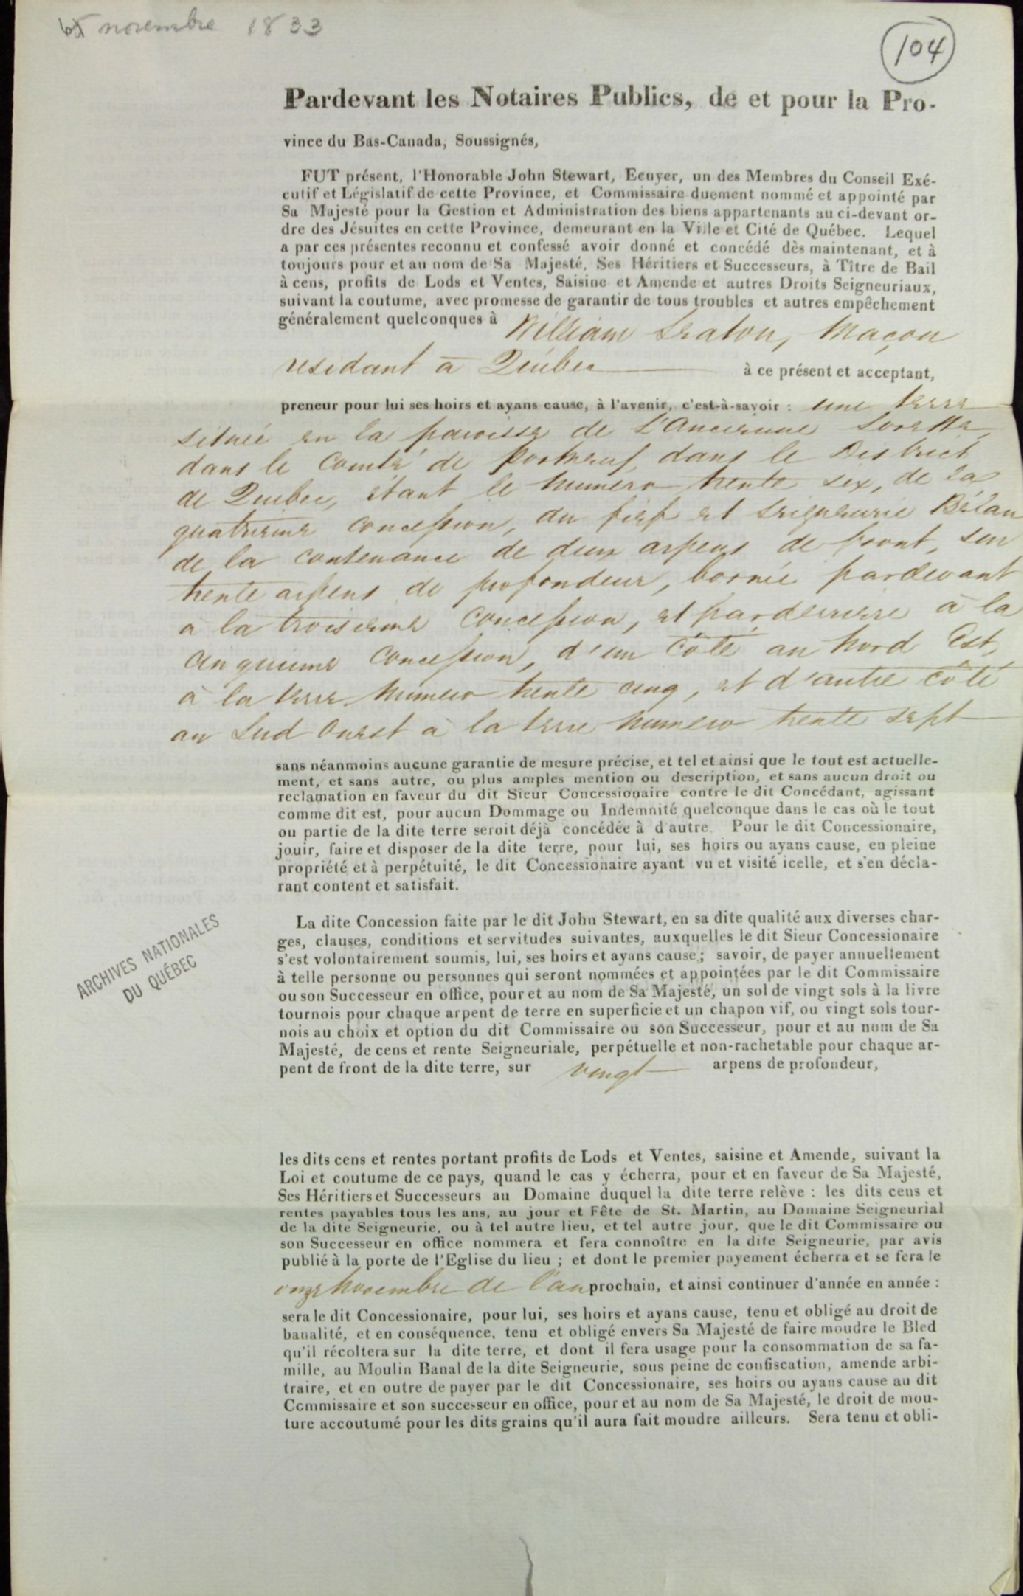 novembre 1833
104
Pardevant les Notaires Publics, de et pour la Pro-
vince du Bas-Canada, Soussignés,
FUT présent, l'Honorable John Stewart, Ecuyer, un des Membres du Conseil Exé-
cutif et Législatif de cette Province, et Commissaire duement nommé et appointé par
Sa Majesté pour la Gestion et Administration des biens appartenants au ci-devant or-
dre des Jésuites en cette Province, demeurant en la Ville et Cité de Québec. Lequel
a par ces présentes reconnu et confessé avoir donné et concédé dès maintenant, et à
toujours pour et au nom de Sa Majesté, Ses Héritiers et Successeurs, à Tître de Bail
à cens, profits de Lods et Ventes, Saisine et Amende et autres Droits Seigneuriaux,
suivant la coutume, avec promesse de garantir de tous troubles et autres empêchement
généralement quelconques à William Maçon
residant à Québec à ce présent et acceptant,
preneur pour lui ses hoirs et ayans cause, à l'avenir, c'est-à-savoir : une terre
située en la paroisse de L'Ancienne Lorette,
dans le Comté de Portneuf, dans le District
de Quebec, étant le numero trente six, de la
quatrieme concession, du fief et seigneurie Bélair
de la contenance de deux arpens de front, sur
trente arpens de profondeur, bornée pardevant
à la troisieme concession, et parderriere à la
cinquieme concession, d'un côté au Nord Est,
à la terre numero trente cinq, et d'autre côté
au Sud Ouest à la terre numero trente sept
sans néanmoins aucune garantie de mesure précise, et tel et ainsi que le tout est actuelle-
ment, et sans autre, ou plus amples mention ou description, et sans aucun droit ou
reclamation en faveur du dit Sieur Concessionaire contre le dit Concédant, agissant
comme dit est, pour aucun Dommage ou Indemnité quelconque dans le cas où le tout
ou partie de la dite terre seroit déjà concédée à d'autre. Pour le dit Concessionaire,
jouir, faire et disposer de la dite terre, pour lui, ses hoirs ou ayans cause, en pleine
propriété et à perpétuité, le dit Concessionaire ayant vu et visité icelle, et s'en décla-
rant content et satisfait.
La dite Concession faite par le dit John Stewart, en sa dite qualité aux diverses char-
ges, clauses, conditions et servitudes suivantes, auxquelles le dit Sieur Concessionaire
s'est volontairement soumis, lui, ses hoirs et ayans cause; savoir, de payer annuellement
à telle personne ou personnes qui seront nommées et appointées par le dit Commissaire
ou son Successeur en office, pour et au nom de Sa Majesté, un sol de vingt sols à la livre
tournois pour chaque arpent de terre en superficie et un chapon vif, ou vingt sols tour-
nois au choix et option du dit Commissaire ou son Successeur, pour et au nom de Sa
Majesté, de cens et rente Seigneuriale, perpétuelle et non-rachetable pour chaque ar-
pent de front de la dite terre, sur vingt arpens de profondeur,
ARCHIVES NATIONALES
DU QUÉBEC
les dits cens et rentes portant profits de Lods et Ventes, saisine et Amende, suivant la
Loi et coutume de ce pays, quand le cas y écherra, pour et en faveur de Sa Majesté,
Ses Héritiers et Successeurs au Domaine duquel la dite terre relève : les dits cens et
rentes payables tous les ans, au jour et Fête de St. Martin, au Domaine Seigneurial
de la dite Seigneurie, ou à tel autre lieu, et tel autre jour, que le dit Commissaire ou
son Successeur en office nommera et fera connoître en la dite Seigneurie, par avis
publié à la porte de l'Eglise du lieu ; et dont le premier payement écherra et se fera le
onze Novembre de l'an prochain, et ainsi continuer d'année en année :
sera le dit Concessionaire, pour lui, ses hoirs et ayans cause, tenu et obligé au droit de
banalité, et en conséquence, tenu et obligé envers Sa Majesté de faire moudre le Bled
qu'il récoltera sur la dite terre, et dont il fera usage pour la consommation de sa fa-
mille, au Moulin Banal de la dite Seigneurie, sous peine de confiscation, amende arbi-
traire, et en outre de payer par le dit Concessionaire, ses hoirs ou ayans cause au dit
Commissaire et son successeur en office, pour et au nom de Sa Majesté, le droit de mou-
ture accoutumé pour les dits grains qu'il aura fait moudre ailleurs. Sera tenu et obli-